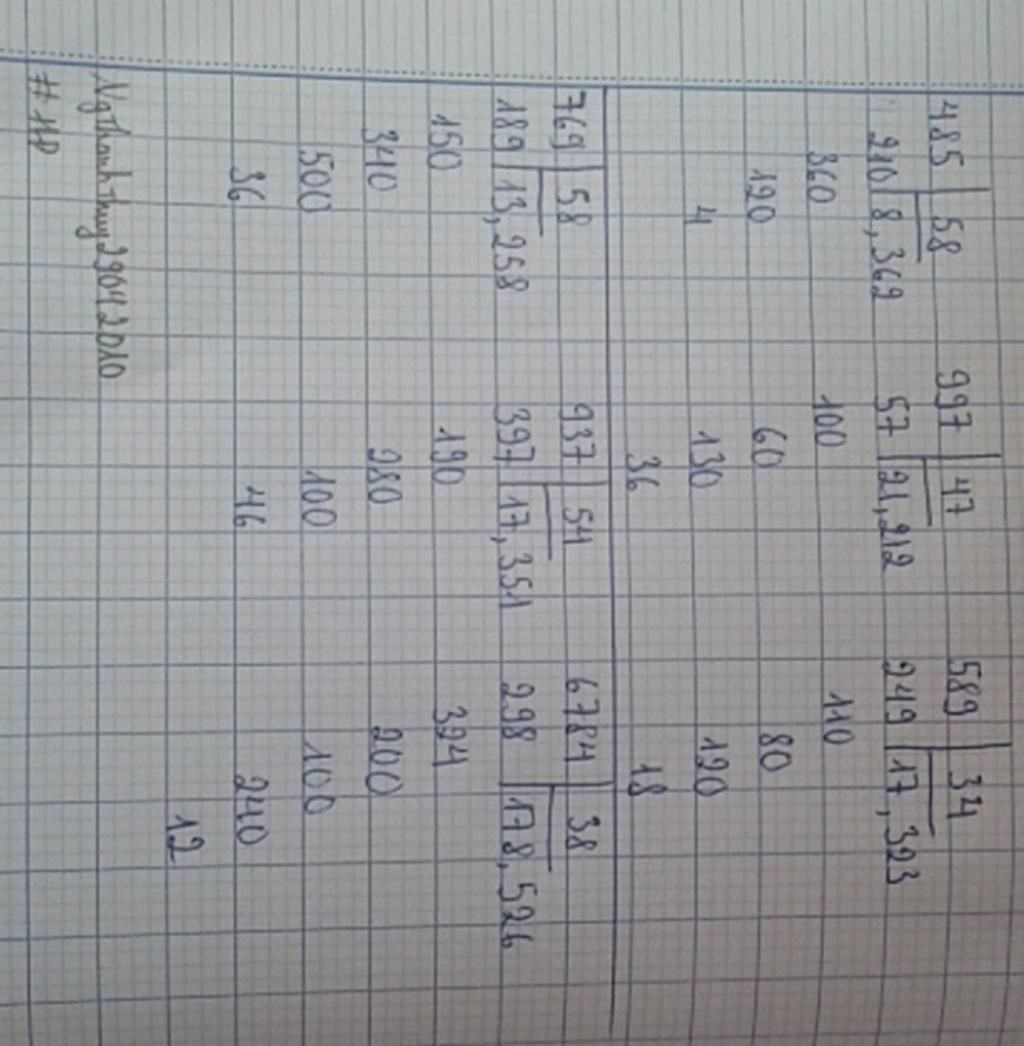 485 | 58    997 | 47    589 | 34
210 | 8,369    57 | 21,212    249 | 17,323
360    100    110
120    60    80
4    130    120
36    18
769 | 58    937 | 54    6784 | 38
189 | 13,258    397 | 17,351    298 | 178,526
150    190    324
340    280    200
500    100    100
36    46    240
12
Ngthanhthuy29042010
# HP